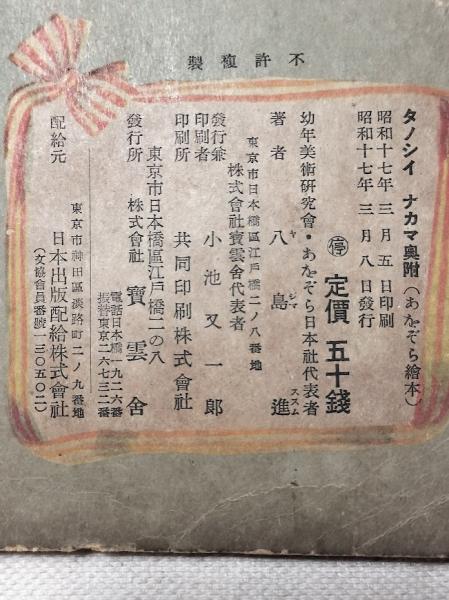 不許複製
タノシイ ナカマ奧附(あをぞら繪本)
昭和十七年 三月五日印刷
昭和十七年 三月八日發行
㊡ 定價 五十錢
幼年美術研究會・あをぞら日本社代表者
著者 八島進
ヤ シマ ススム
東京市日本橋區江戶橋二ノ八番地
株式會社寶雲舍代表者
發行兼
印刷者 小池又一郎
印刷所 共同印刷株式會社
東京市日本橋區江戶橋二の八
發行所 株式會社 寶雲舍
電話日本橋一九二六番
振替東京二六七三二番
配給元 東京市神田區淡路町二ノ九番地
日本出版配給株式會社
(文協會員番號一三〇五〇二)